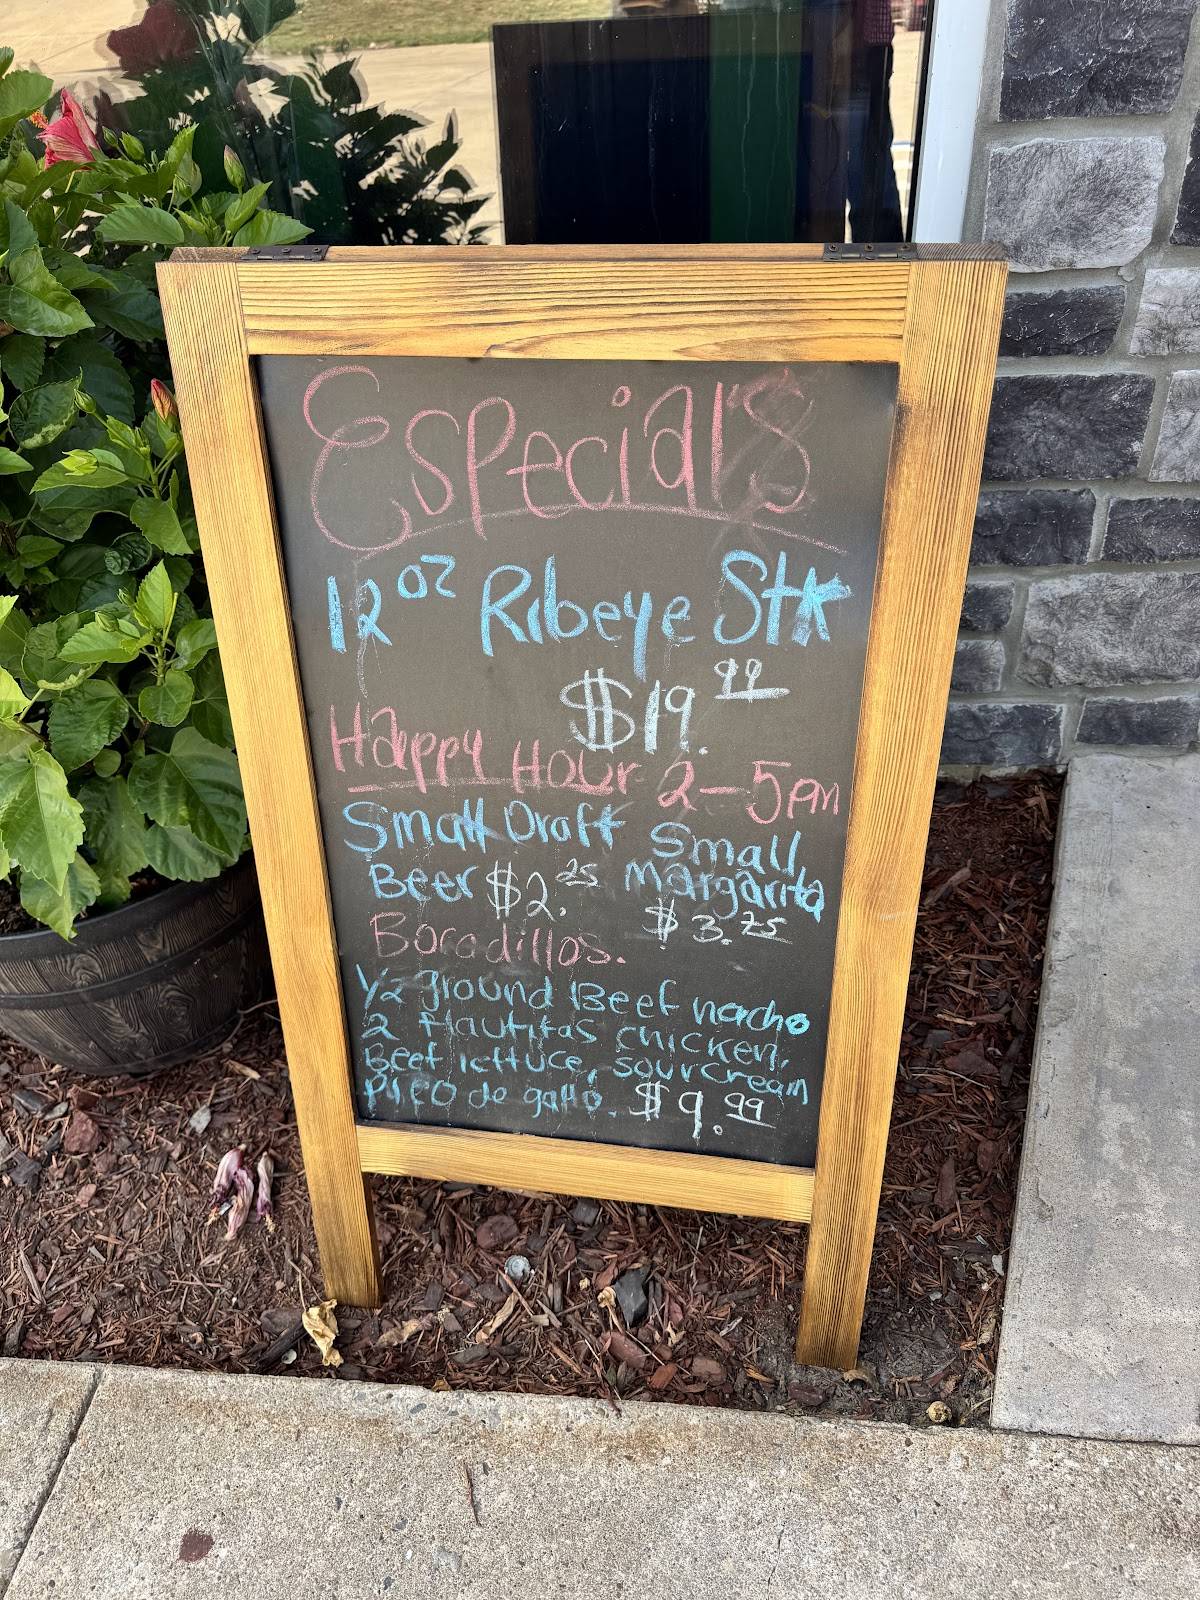 Especial's
12 oz Ribeye Stk
$19.99
Happy Hour 2-5pm
Small Draft Small
Beer $2.25 margarita
$3.75
Bocadillos.
1/2 ground Beef nacho
2 flautitas chicken,
Beef lettuce, sourcream
pico de gallo. $9.99